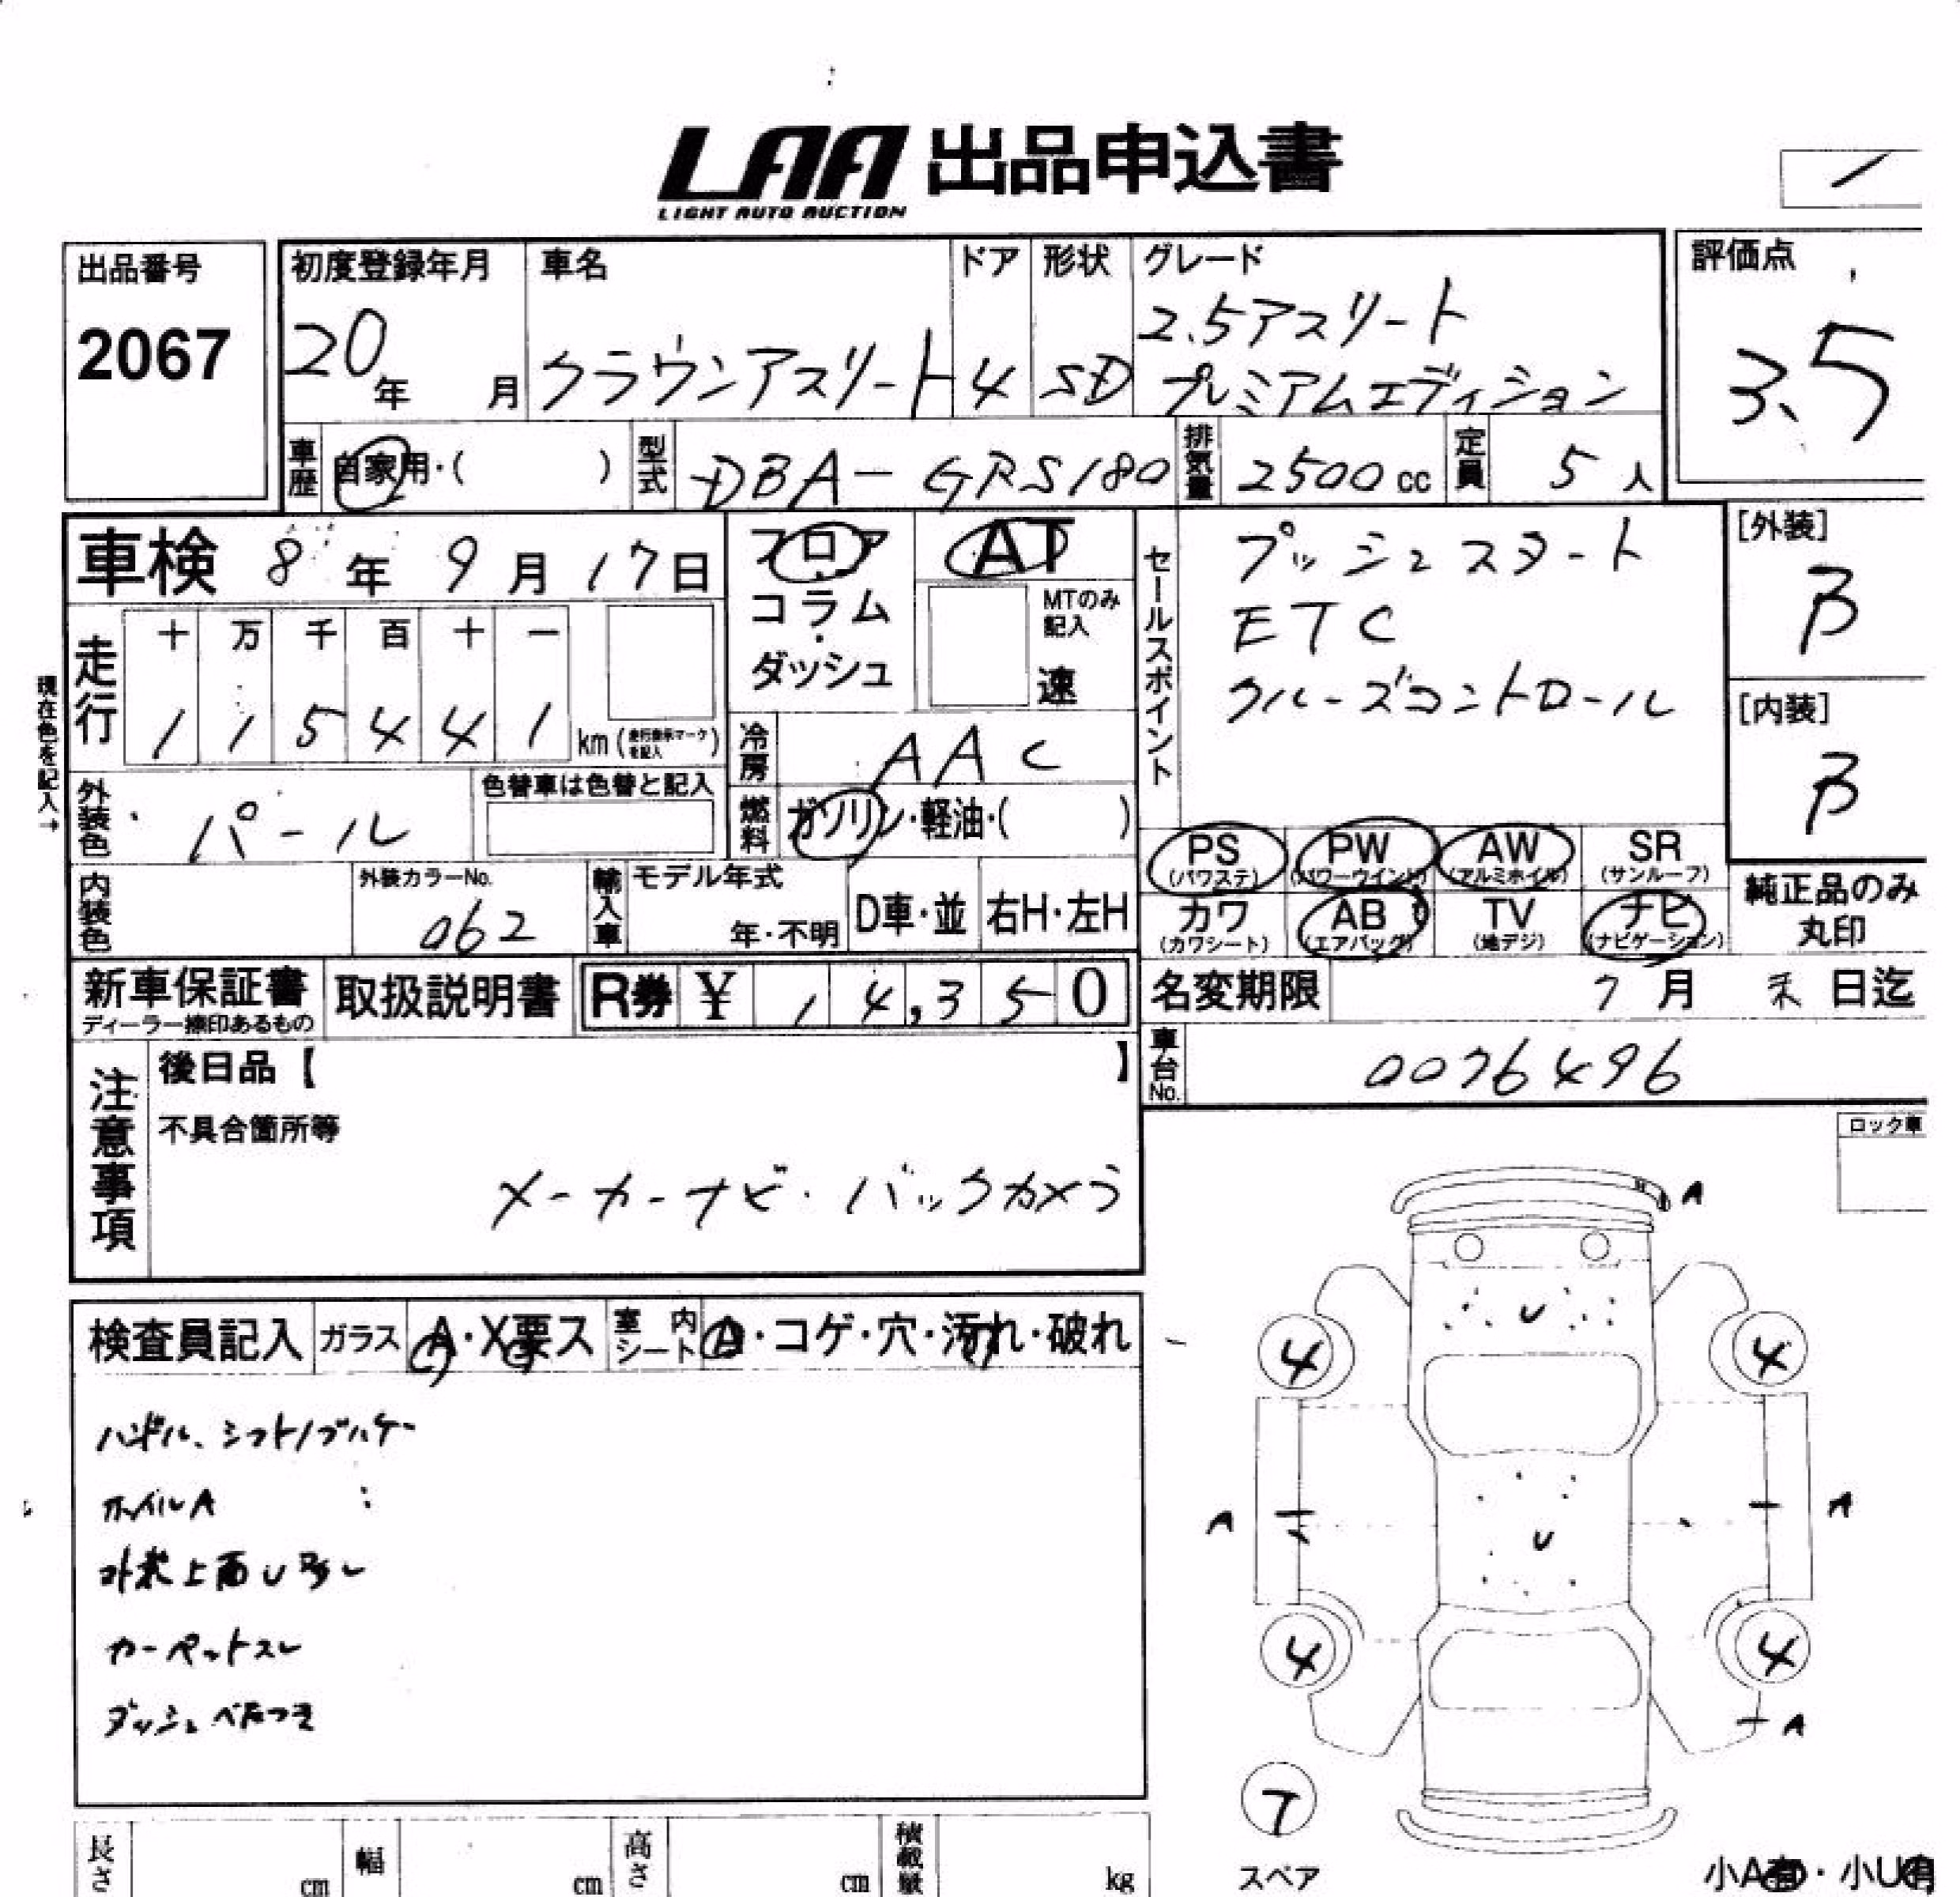 LAA 出品申込書
LIGHT AUTO AUCTION
出品番号
2067
初度登録年月
20年 月
車名
クラウンアスリート
ドア
4
形状
SD
グレード
2.5アスリート
プレミアムエディション
評価点
3.5
車歴 自家用・( )
型式 DBA-GRS180
排気量 2500cc
定員 5人
車検 8年9月17日
フロア・
コラム・
ダッシュ
AT
MTのみ
記入
速
セールスポイント
プッシュスタート
ETC
クルーズコントロール
[外装]
B
[内装]
B
現在色を記入→
走行
十 万 千 百 十 一
1 1 5 4 4 1 km (走行表示マークを記入)
冷房 AAC
燃料 ガソリン・軽油・( )
外装色 パール
色替車は色替と記入
内装色
外装カラーNo.
062
輸入車
モデル年式
年・不明
D車・並
右H・左H
PS (パワステ)
PW (パワーウインド)
AW (アルミホイル)
SR (サンルーフ)
カワ (カワシート)
AB (エアバッグ)
TV (地デジ)
ナビ (ナビゲーション)
純正品のみ
丸印
新車保証書
ディーラー捺印あるもの
取扱説明書
R券 ¥ 14,350
名変期限 7月末日迄
車台No. 0076496
注意事項
後日品【 】
不具合箇所等
メーカーナビ・バックカメラ
ロック車
検査員記入
ガラス A・X要ス
室内シート ・コゲ・穴・汚れ・破れ
ハンドル、シフトノブハゲ
ホイルA
外装上面U多し
カーペットスレ
ダッシュベたつき
A
U
4 4
A A
U
4 4
A
T
スペア
小A有・小U有
長さ cm
幅 cm
高さ cm
積載量 kg